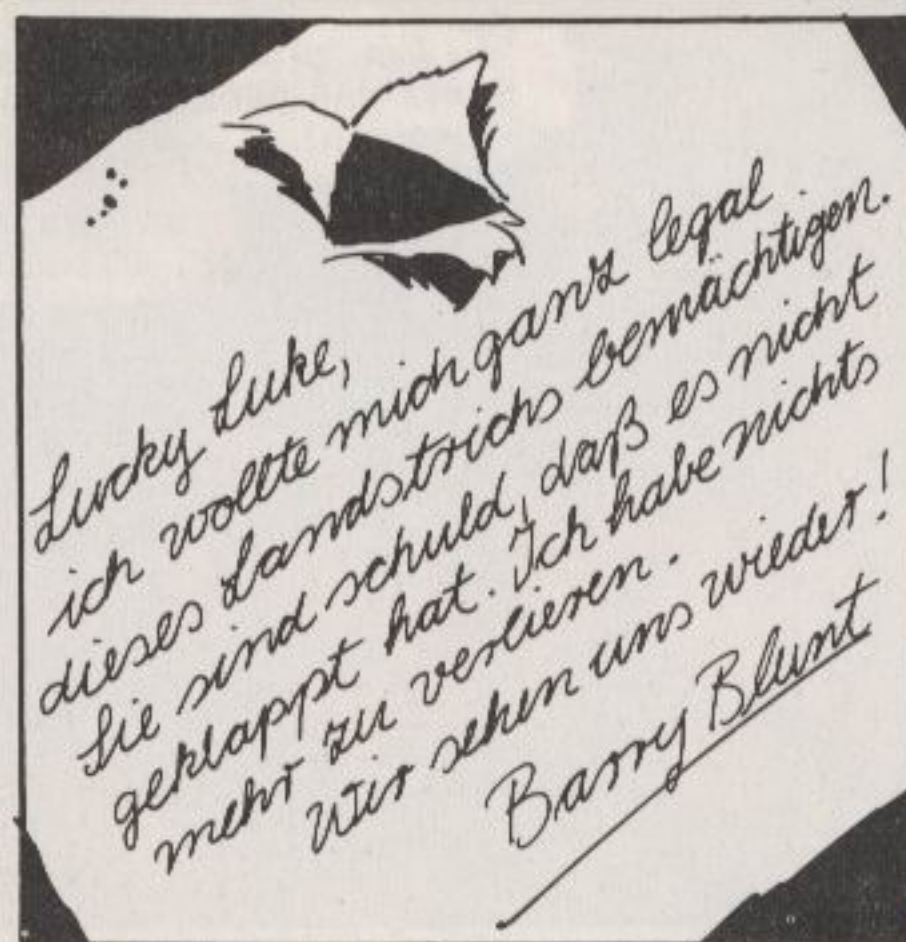 Lucky Luke,
ich wollte mich ganz legal
dieses Landstrichs bemächtigen.
Sie sind schuld, daß es nicht
geklappt hat. Ich habe nichts
mehr zu verlieren.
Wir sehen uns wieder!
Barry Blunt